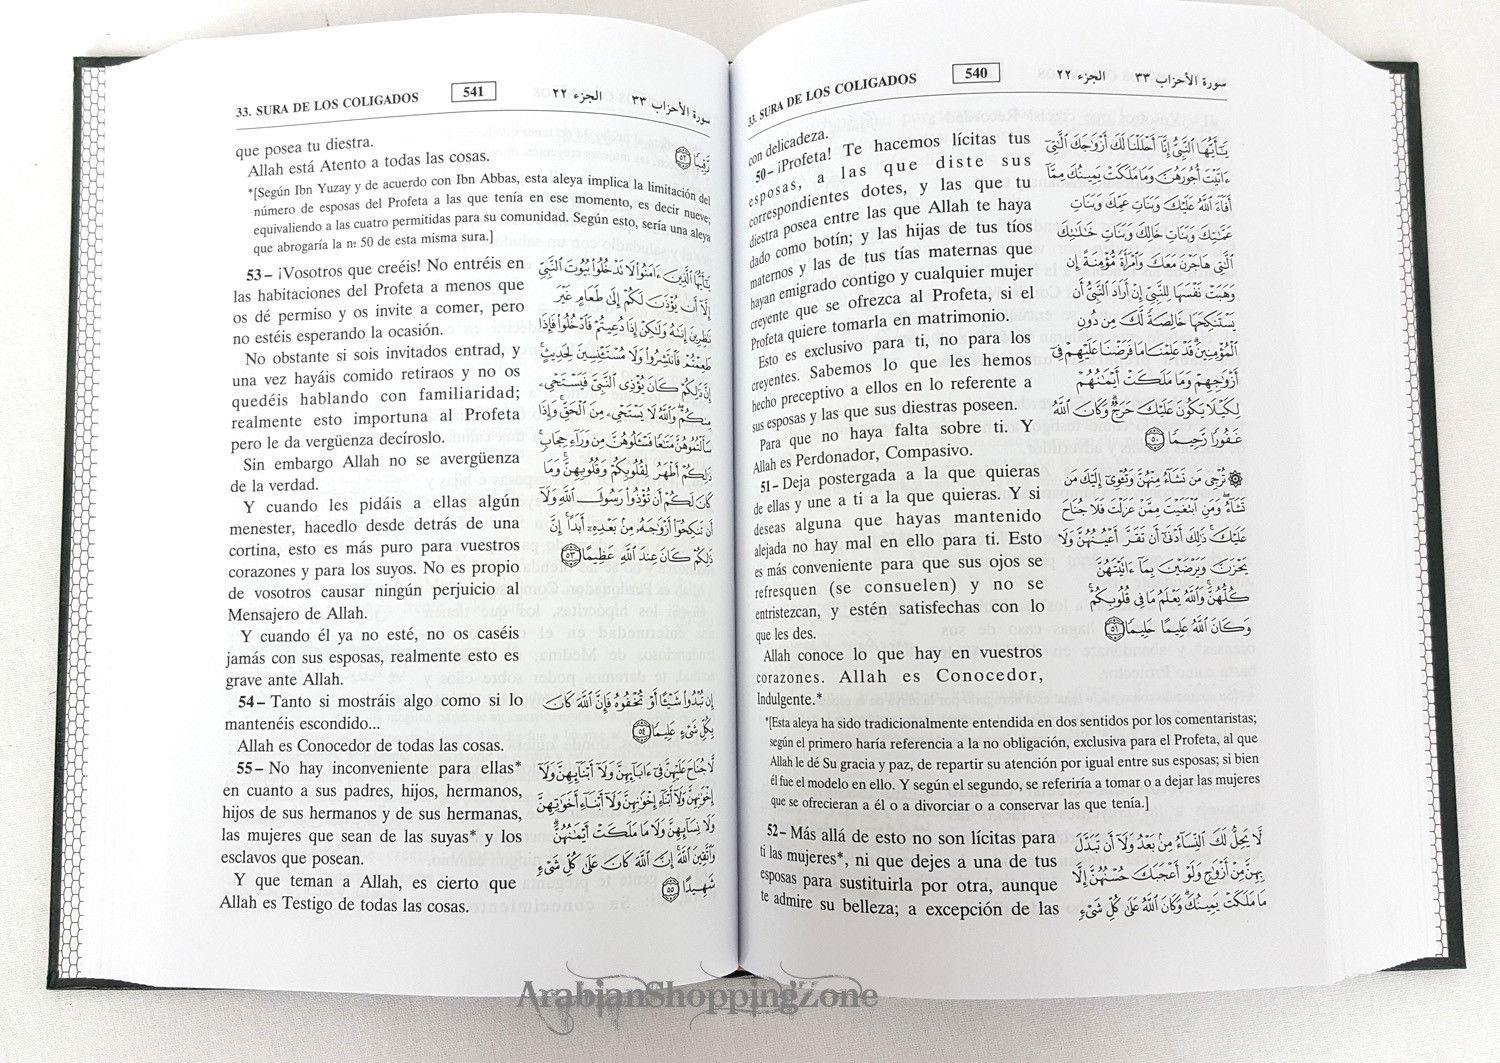 33. SURA DE LOS COLIGADOS
540
الجزء ٢٢
سورة الأحزاب ٣٣
con delicadeza.
50– ¡Profeta! Te hacemos lícitas tus
esposas, a las que diste sus
correspondientes dotes, y las que tu
diestra posea entre las que Allah te haya
dado como botín; y las hijas de tus tíos
maternos y las de tus tías maternas que
hayan emigrado contigo y cualquier mujer
creyente que se ofrezca al Profeta, si el
Profeta quiere tomarla en matrimonio.
Esto es exclusivo para ti, no para los
creyentes. Sabemos lo que les hemos
hecho preceptivo a ellos en lo referente a
sus esposas y las que sus diestras poseen.
Para que no haya falta sobre ti. Y
Allah es Perdonador, Compasivo.
يَـٰٓأَيُّهَا ٱلنَّبِىُّ إِنَّآ أَحْلَلْنَا لَكَ أَزْوَٰجَكَ ٱلَّـٰتِىٓ
ءَاتَيْتَ أُجُورَهُنَّ وَمَا مَلَكَتْ يَمِينُكَ مِمَّآ
أَفَآءَ ٱللَّهُ عَلَيْكَ وَبَنَاتِ عَمِّكَ وَبَنَاتِ
عَمَّـٰتِكَ وَبَنَاتِ خَالِكَ وَبَنَاتِ خَـٰلَـٰتِكَ
ٱلَّـٰتِى هَاجَرْنَ مَعَكَ وَٱمْرَأَةً مُّؤْمِنَةً إِن
وَهَبَتْ نَفْسَهَا لِلنَّبِىِّ إِنْ أَرَادَ ٱلنَّبِىُّ أَن
يَسْتَنكِحَهَا خَالِصَةً لَّكَ مِن دُونِ
ٱلْمُؤْمِنِينَ ۗ قَدْ عَلِمْنَا مَا فَرَضْنَا عَلَيْهِمْ فِىٓ
أَزْوَٰجِهِمْ وَمَا مَلَكَتْ أَيْمَـٰنُهُمْ
لِكَيْلَا يَكُونَ عَلَيْكَ حَرَجٌ ۗ وَكَانَ ٱللَّهُ
غَفُورًا رَّحِيمًا ٥٠
51– Deja postergada a la que quieras
de ellas y une a ti a la que quieras. Y si
deseas alguna que hayas mantenido
alejada no hay mal en ello para ti. Esto
es más conveniente para que sus ojos se
refresquen (se consuelen) y no se
entristezcan, y estén satisfechas con lo
que les des.
Allah conoce lo que hay en vuestros
corazones. Allah es Conocedor,
Indulgente.*
۞ تُرْجِى مَن تَشَآءُ مِنْهُنَّ وَتُـْٔوِىٓ إِلَيْكَ مَن
تَشَآءُ ۖ وَمَنِ ٱبْتَغَيْتَ مِمَّنْ عَزَلْتَ فَلَا جُنَاحَ
عَلَيْكَ ۚ ذَٰلِكَ أَدْنَىٰٓ أَن تَقَرَّ أَعْيُنُهُنَّ وَلَا
يَحْزَنَّ وَيَرْضَيْنَ بِمَآ ءَاتَيْتَهُنَّ
كُلُّهُنَّ ۚ وَٱللَّهُ يَعْلَمُ مَا فِى قُلُوبِكُمْ ۚ
وَكَانَ ٱللَّهُ عَلِيمًا حَلِيمًا ٥١
*[Esta aleya ha sido tradicionalmente entendida en dos sentidos por los comentaristas;
según el primero haría referencia a la no obligación, exclusiva para el Profeta, al que
Allah le dé Su gracia y paz, de repartir su atención por igual entre sus esposas; si bien
él fue el modelo en ello. Y según el segundo, se referiría a tomar o a dejar las mujeres
que se ofrecieran a él o a divorciar o a conservar las que tenía.]
52– Más allá de esto no son lícitas para
ti las mujeres*, ni que dejes a una de tus
esposas para sustituirla por otra, aunque
te admire su belleza; a excepción de las
لَّا يَحِلُّ لَكَ ٱلنِّسَآءُ مِنۢ بَعْدُ وَلَآ أَن تَبَدَّلَ
بِهِنَّ مِنْ أَزْوَٰجٍ وَلَوْ أَعْجَبَكَ حُسْنُهُنَّ إِلَّا
مَا مَلَكَتْ يَمِينُكَ ۗ وَكَانَ ٱللَّهُ عَلَىٰ كُلِّ شَىْءٍ
33. SURA DE LOS COLIGADOS
541
الجزء ٢٢
سورة الأحزاب ٣٣
que posea tu diestra.
Allah está Atento a todas las cosas.
رَّقِيبًا ٥٢
*[Según Ibn Yuzay y de acuerdo con Ibn Abbas, esta aleya implica la limitación del
número de esposas del Profeta a las que tenía en ese momento, es decir nueve;
equivaliendo a las cuatro permitidas para su comunidad. Según esto, sería una aleya
que abrogaría la nº 50 de esta misma sura.]
53– ¡Vosotros que creéis! No entréis en
las habitaciones del Profeta a menos que
os dé permiso y os invite a comer, pero
no estéis esperando la ocasión.
No obstante si sois invitados entrad, y
una vez hayáis comido retiraos y no os
quedéis hablando con familiaridad;
realmente esto importuna al Profeta
pero le da vergüenza decíroslo.
Sin embargo Allah no se avergüenza
de la verdad.
Y cuando les pidáis a ellas algún
menester, hacedlo desde detrás de una
cortina, esto es más puro para vuestros
corazones y para los suyos. No es propio
de vosotros causar ningún perjuicio al
Mensajero de Allah.
Y cuando él ya no esté, no os caséis
jamás con sus esposas, realmente esto es
grave ante Allah.
يَـٰٓأَيُّهَا ٱلَّذِينَ ءَامَنُوا۟ لَا تَدْخُلُوا۟ بُيُوتَ ٱلنَّبِىِّ
إِلَّآ أَن يُؤْذَنَ لَكُمْ إِلَىٰ طَعَامٍ غَيْرَ
نَـٰظِرِينَ إِنَىٰهُ وَلَـٰكِنْ إِذَا دُعِيتُمْ فَٱدْخُلُوا۟ فَإِذَا
طَعِمْتُمْ فَٱنتَشِرُوا۟ وَلَا مُسْتَـْٔنِسِينَ لِحَدِيثٍ ۚ
إِنَّ ذَٰلِكُمْ كَانَ يُؤْذِى ٱلنَّبِىَّ فَيَسْتَحْىِۦ
مِنكُمْ ۖ وَٱللَّهُ لَا يَسْتَحْىِۦ مِنَ ٱلْحَقِّ ۚ وَإِذَا
سَأَلْتُمُوهُنَّ مَتَـٰعًا فَسْـَٔلُوهُنَّ مِن وَرَآءِ حِجَابٍ ۚ
ذَٰلِكُمْ أَطْهَرُ لِقُلُوبِكُمْ وَقُلُوبِهِنَّ ۚ وَمَا
كَانَ لَكُمْ أَن تُؤْذُوا۟ رَسُولَ ٱللَّهِ وَلَآ
أَن تَنكِحُوٓا۟ أَزْوَٰجَهُۥ مِنۢ بَعْدِهِۦٓ أَبَدًا ۚ إِنَّ
ذَٰلِكُمْ كَانَ عِندَ ٱللَّهِ عَظِيمًا ٥٣
54– Tanto si mostráis algo como si lo
mantenéis escondido...
Allah es Conocedor de todas las cosas.
إِن تُبْدُوا۟ شَيْـًٔا أَوْ تُخْفُوهُ فَإِنَّ ٱللَّهَ كَانَ
بِكُلِّ شَىْءٍ عَلِيمًا ٥٤
55– No hay inconveniente para ellas*
en cuanto a sus padres, hijos, hermanos,
hijos de sus hermanos y de sus hermanas,
las mujeres que sean de las suyas* y los
esclavos que posean.
Y que teman a Allah, es cierto que
Allah es Testigo de todas las cosas.
لَّا جُنَاحَ عَلَيْهِنَّ فِىٓ ءَابَآئِهِنَّ وَلَآ أَبْنَآئِهِنَّ وَلَآ
إِخْوَٰنِهِنَّ وَلَآ أَبْنَآءِ إِخْوَٰنِهِنَّ وَلَآ أَبْنَآءِ أَخَوَٰتِهِنَّ
وَلَا نِسَآئِهِنَّ وَلَا مَا مَلَكَتْ أَيْمَـٰنُهُنَّ ۗ
وَٱتَّقِينَ ٱللَّهَ ۚ إِنَّ ٱللَّهَ كَانَ عَلَىٰ كُلِّ شَىْءٍ
شَهِيدًا ٥٥
ArabianShoppingZone